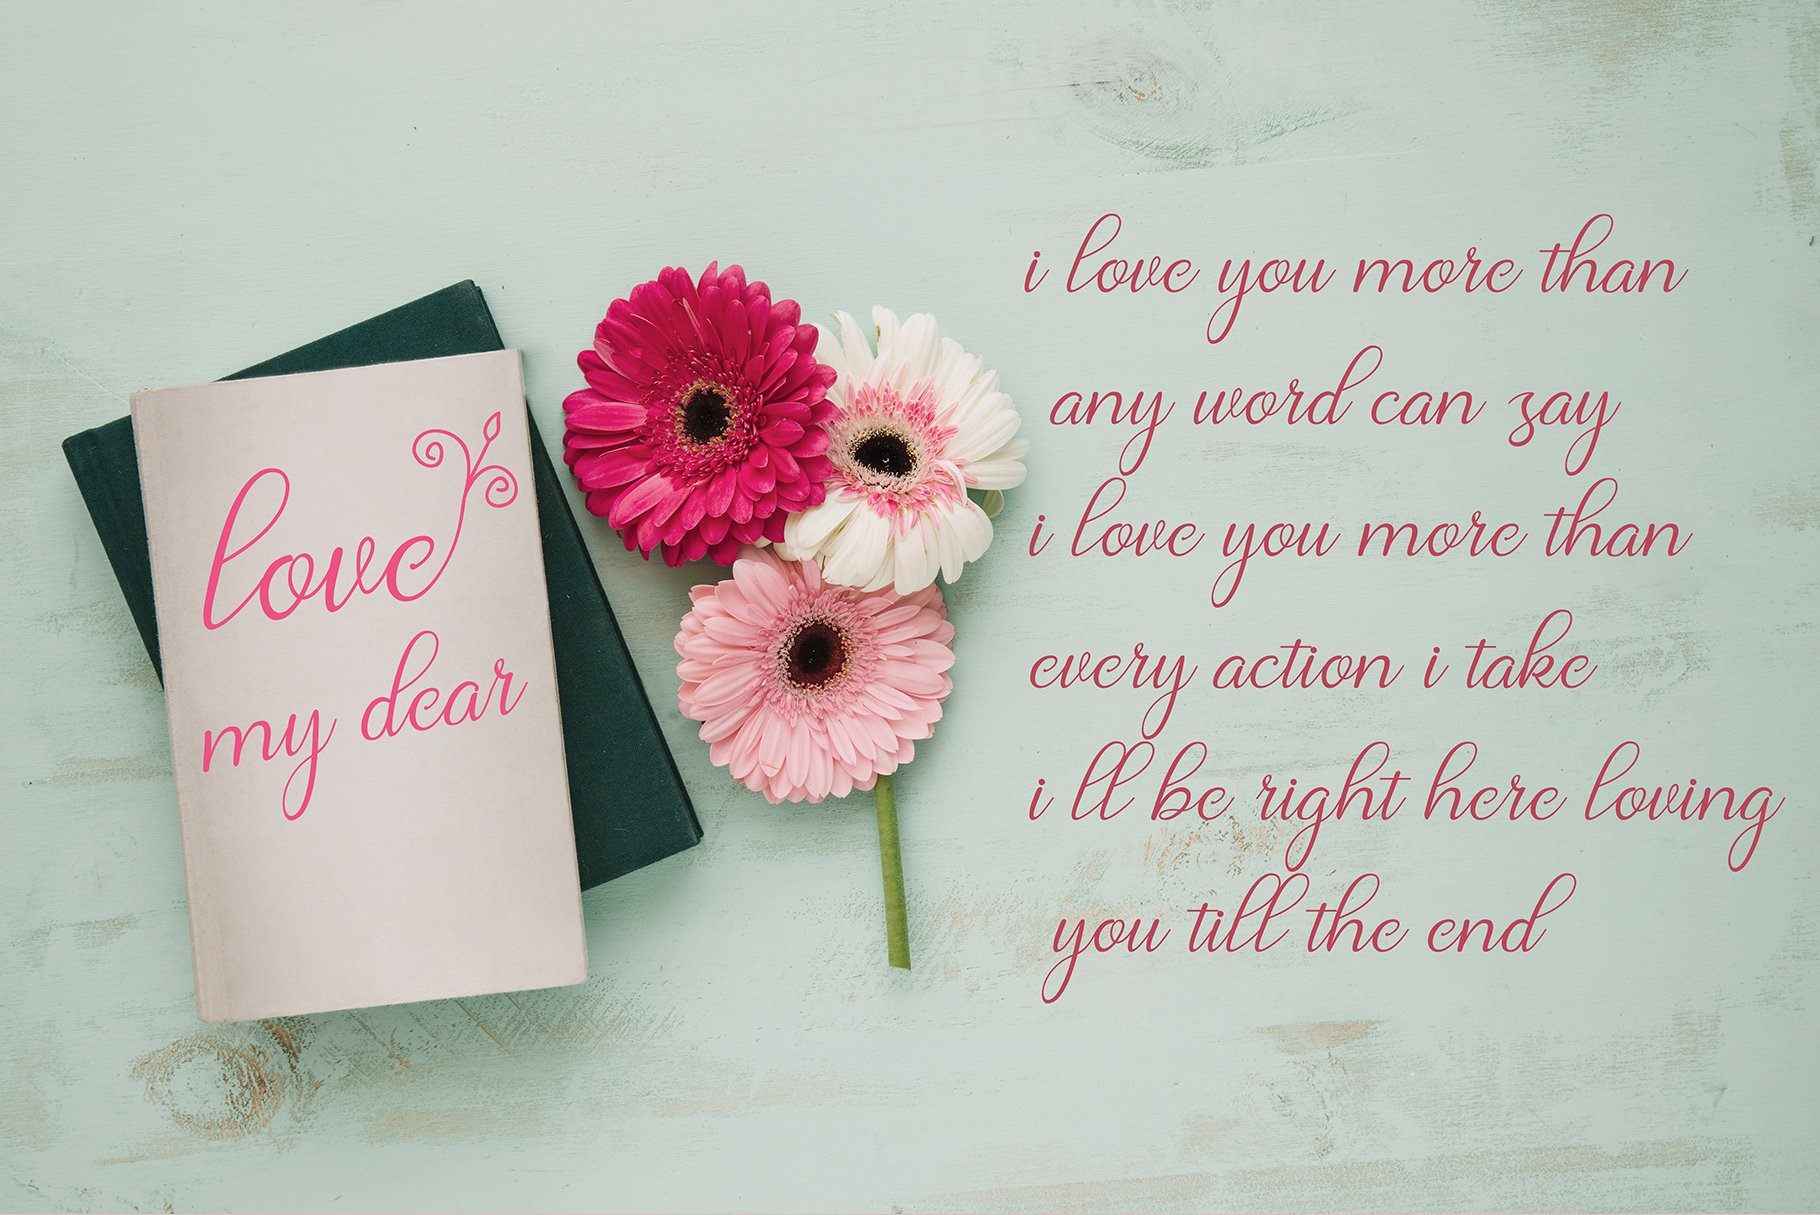 love
my dear
i love you more than
any word can say
i love you more than
every action i take
i ll be right here loving
you till the end